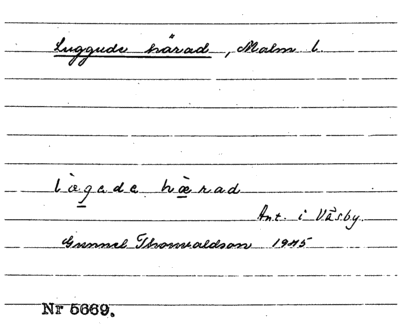 Luggude härad, Malm l.
lægade hærad
Ant. i Väsby.
Gunnel Thorvaldson 1945
Nr 5669.